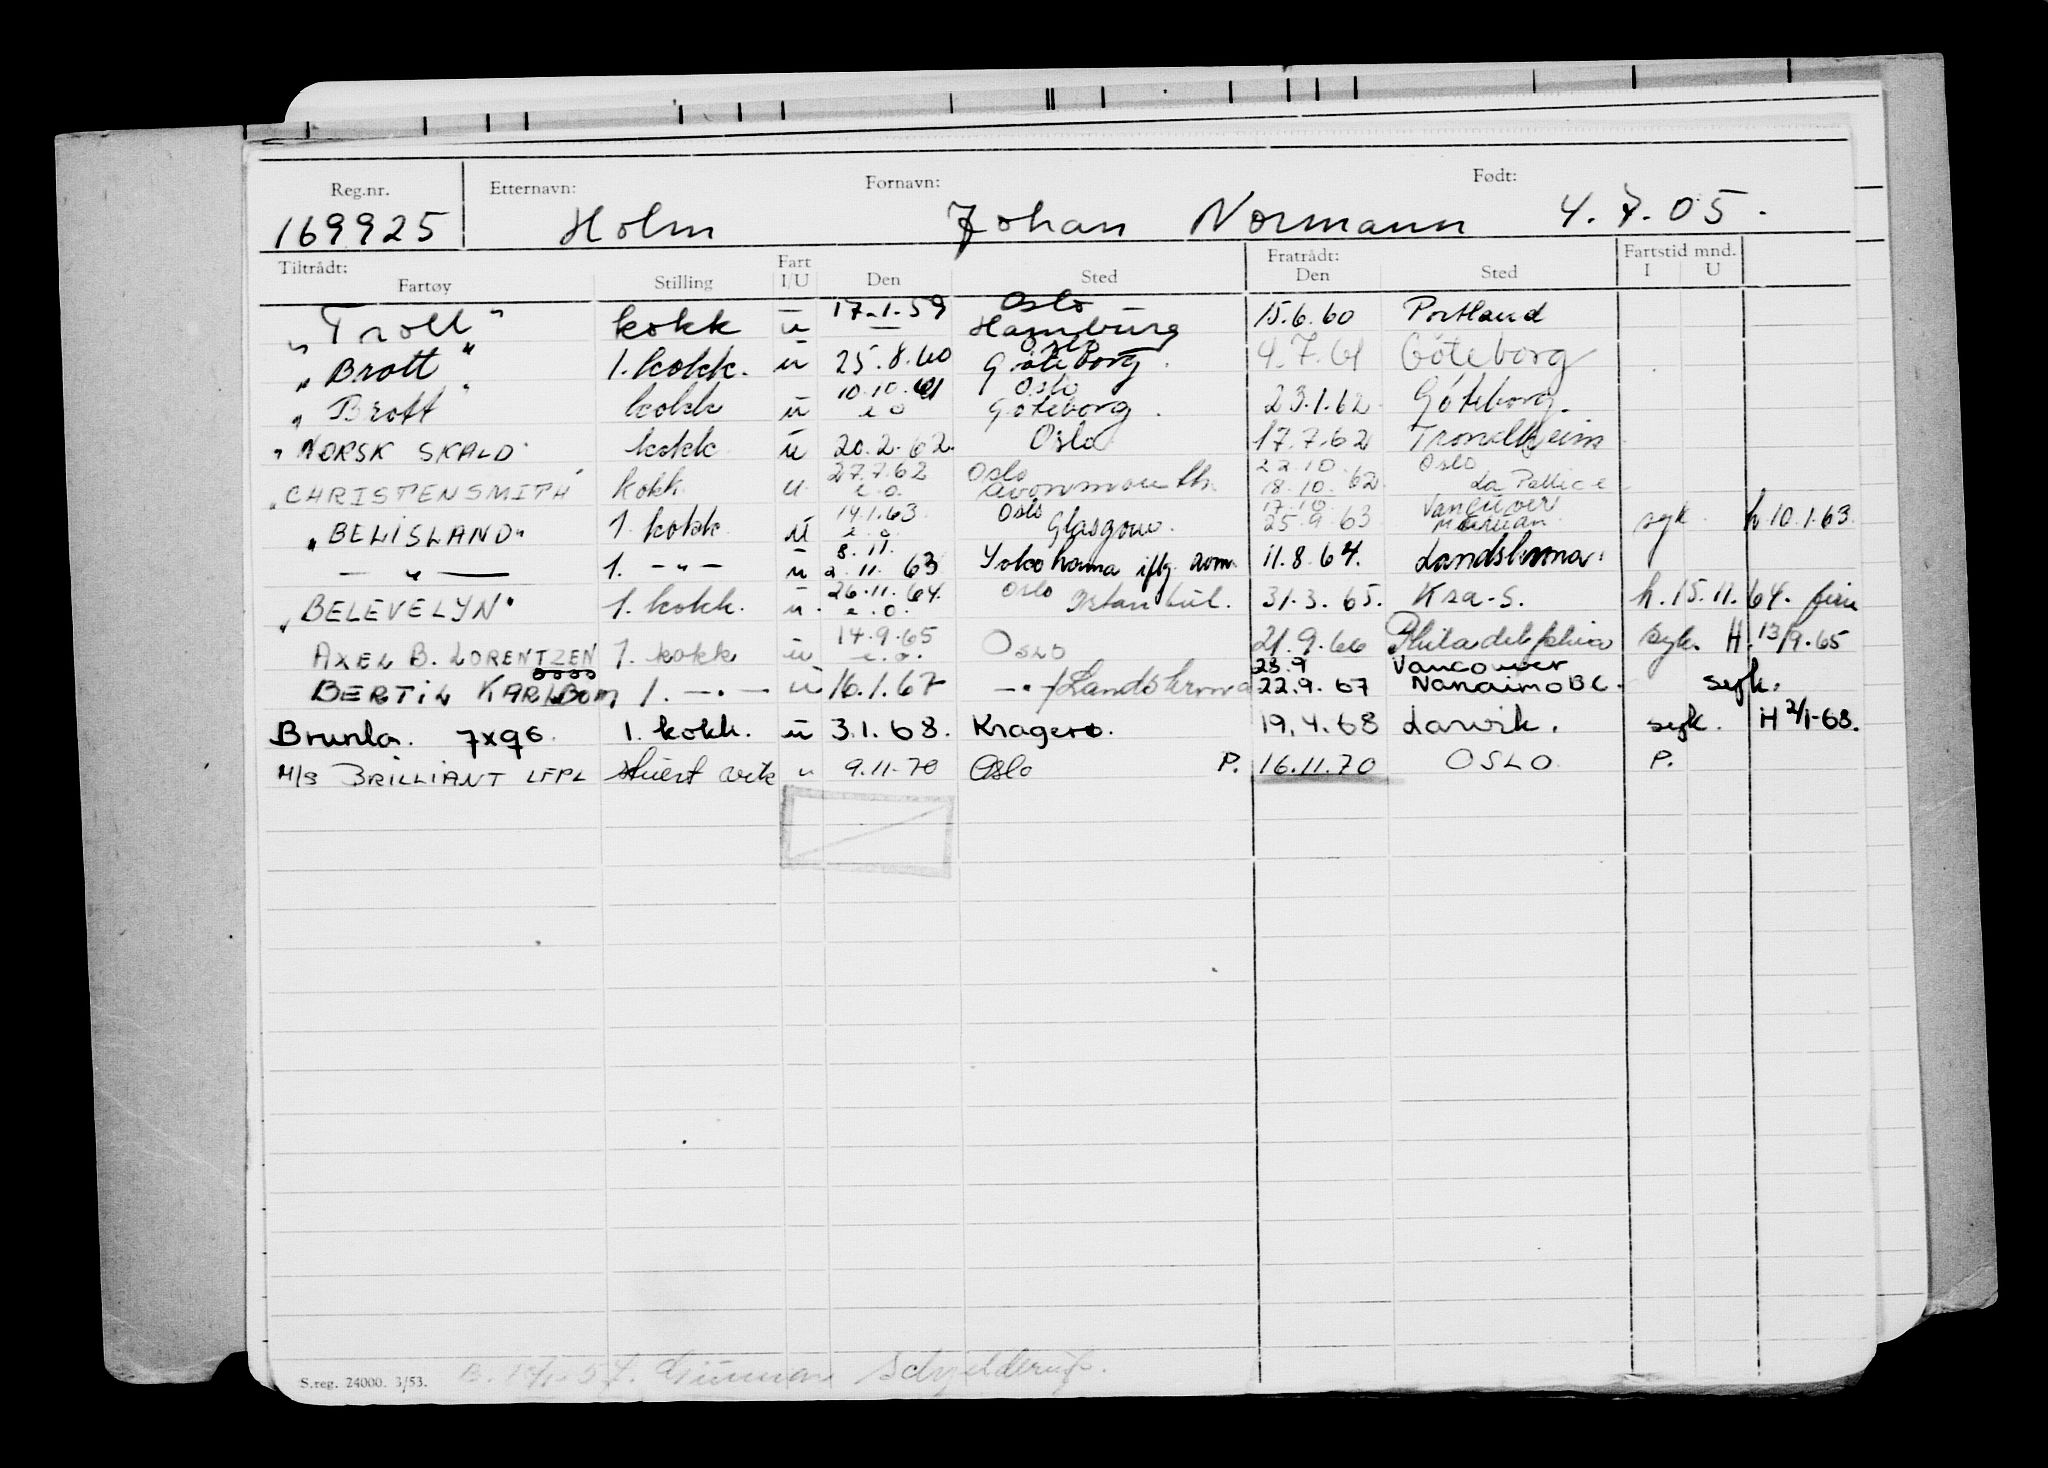 Reg.nr. Etternavn: Fornavn: Født:
169925 Holm Johan Normann 4.7.05.
Tiltrådt: Fart Fratrådt: Fartstid mnd.
Fartøy Stilling I/U Den Sted Den Sted I U
Oslo
"Troll" kokk u 17.1.59 Hamburg 15.6.60 Portland
Oslo
"Brott" 1. kokk. u 25.8.60 Göteborg. 4.7.61 Göteborg
10.10.61 Oslo
"Brott" kokk u e o Göteborg. 23.1.62 Göteborg.
"NORSK SKALD" kokk u 20.2.62. Oslo 17.7.62 Trondheim
27.7.62 Oslo 22.10. Oslo
"CHRISTENSMITH" kokk u e.o. Avonmouth. 18.10.62. La Pallice
14.1.63. Oslo 17.10. Vancuver
"BELISLAND" 1. kokk u e.o. Glasgow. 25.9.63 syk h 10.1.63.
8.11.
— " — 1. - " - u 2.11.63 Yokohama iflg. 11.8.64. Landskrona.
26.11.64. Oslo
"BELEVELYN" 1. kokk. u. e.o. Istanbul. 31.3.65. Kra-S. h. 15.11.64.
14.9.65
AXEL B. LORENTZEN 1. kokk u e.o. OSLO 21.9.66 Philadelphia syk. H. 13/9-65
23.9 Vancouver
BERTIL KARLBOM 1. - " - u 16.1.67 - " - / Landskrona 22.9.67 Nanaimo BC. syk.
Brunla. 7x96 1. kokk. u 3.1.68. Kragerø. 19.4.68 Larvik. syk. H 2/1-68.
M/S BRILLIANT LFPL Stuert vik u 9.11.70 Oslo P. 16.11.70 OSLO P.
S.reg. 24000. 3/53. Gunnar Schjelderup.